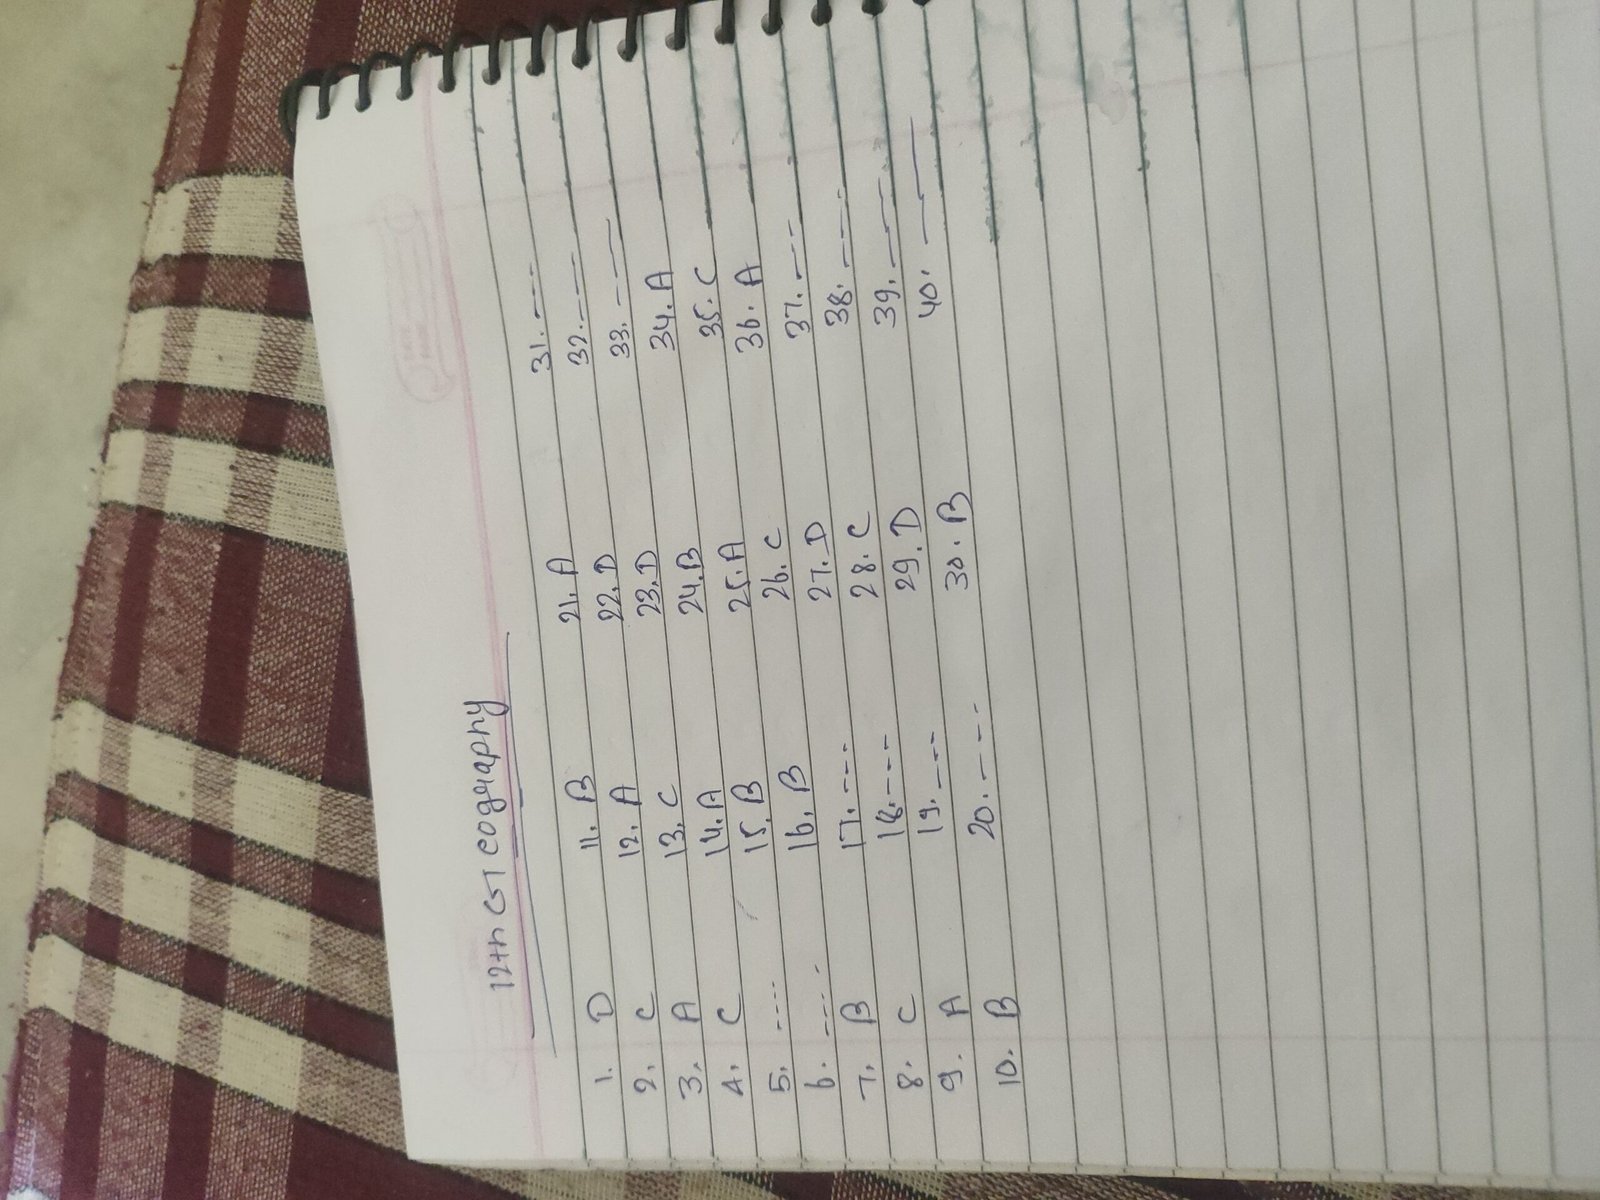 12th GJ Geography
1. D
2. C
3. A
4. C
5. ----
6. ----
7. B
8. C
9. A
10. B
11. B
12. A
13. C
14. A
15. B
16. B
17. ----
18. ----
19. ----
20. ----
21. A
22. D
23. D
24. B
25. A
26. C
27. D
28. C
29. D
30. B
31. ---
32. ---
33. ---
34. A
35. C
36. A
37. ---
38. ---
39. ---
40. ---